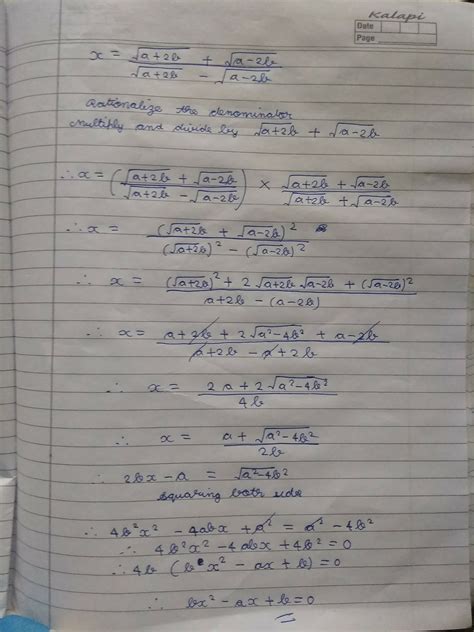 Kalapi
Date
Page
x = √(a+2b) + √(a-2b) / √(a+2b) - √(a-2b)
Rationalize the denominator
Multiply and divide by √(a+2b) + √(a-2b)
∴ x = (√(a+2b) + √(a-2b) / √(a+2b) - √(a-2b)) × √(a+2b) + √(a-2b) / √(a+2b) + √(a-2b)
∴ x = (√(a+2b) + √(a-2b))² / (√(a+2b))² - (√(a-2b))²
∴ x = (√(a+2b))² + 2√(a+2b) √(a-2b) + (√(a-2b))² / a+2b - (a-2b)
∴ x = a + 2b + 2√(a²-4b²) + a-2b / a+2b - a + 2b
∴ x = 2a + 2√(a²-4b²) / 4b
∴ x = a + √(a²-4b²) / 2b
∴ 2bx - a = √(a²-4b²)
squaring both side
∴ 4b²x² - 4abx + a² = a² - 4b²
∴ 4b²x² - 4abx + 4b² = 0
∴ 4b (bx² - ax + b) = 0
∴ bx² - ax + b = 0